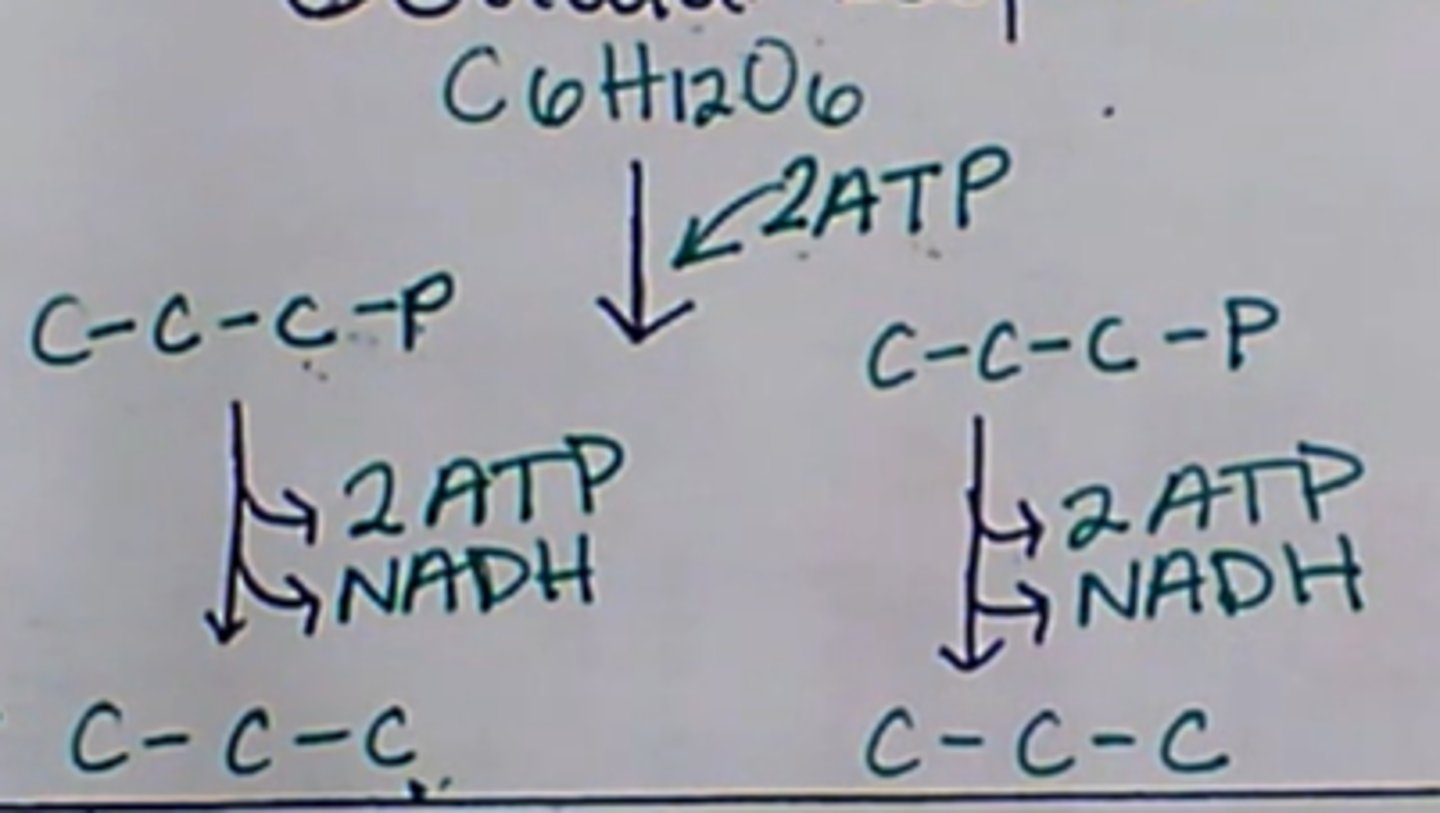 C6H12O6
2ATP
C-C-C-P
C-C-C-P
2ATP
NADH
2ATP
NADH
C-C-C
C-C-C